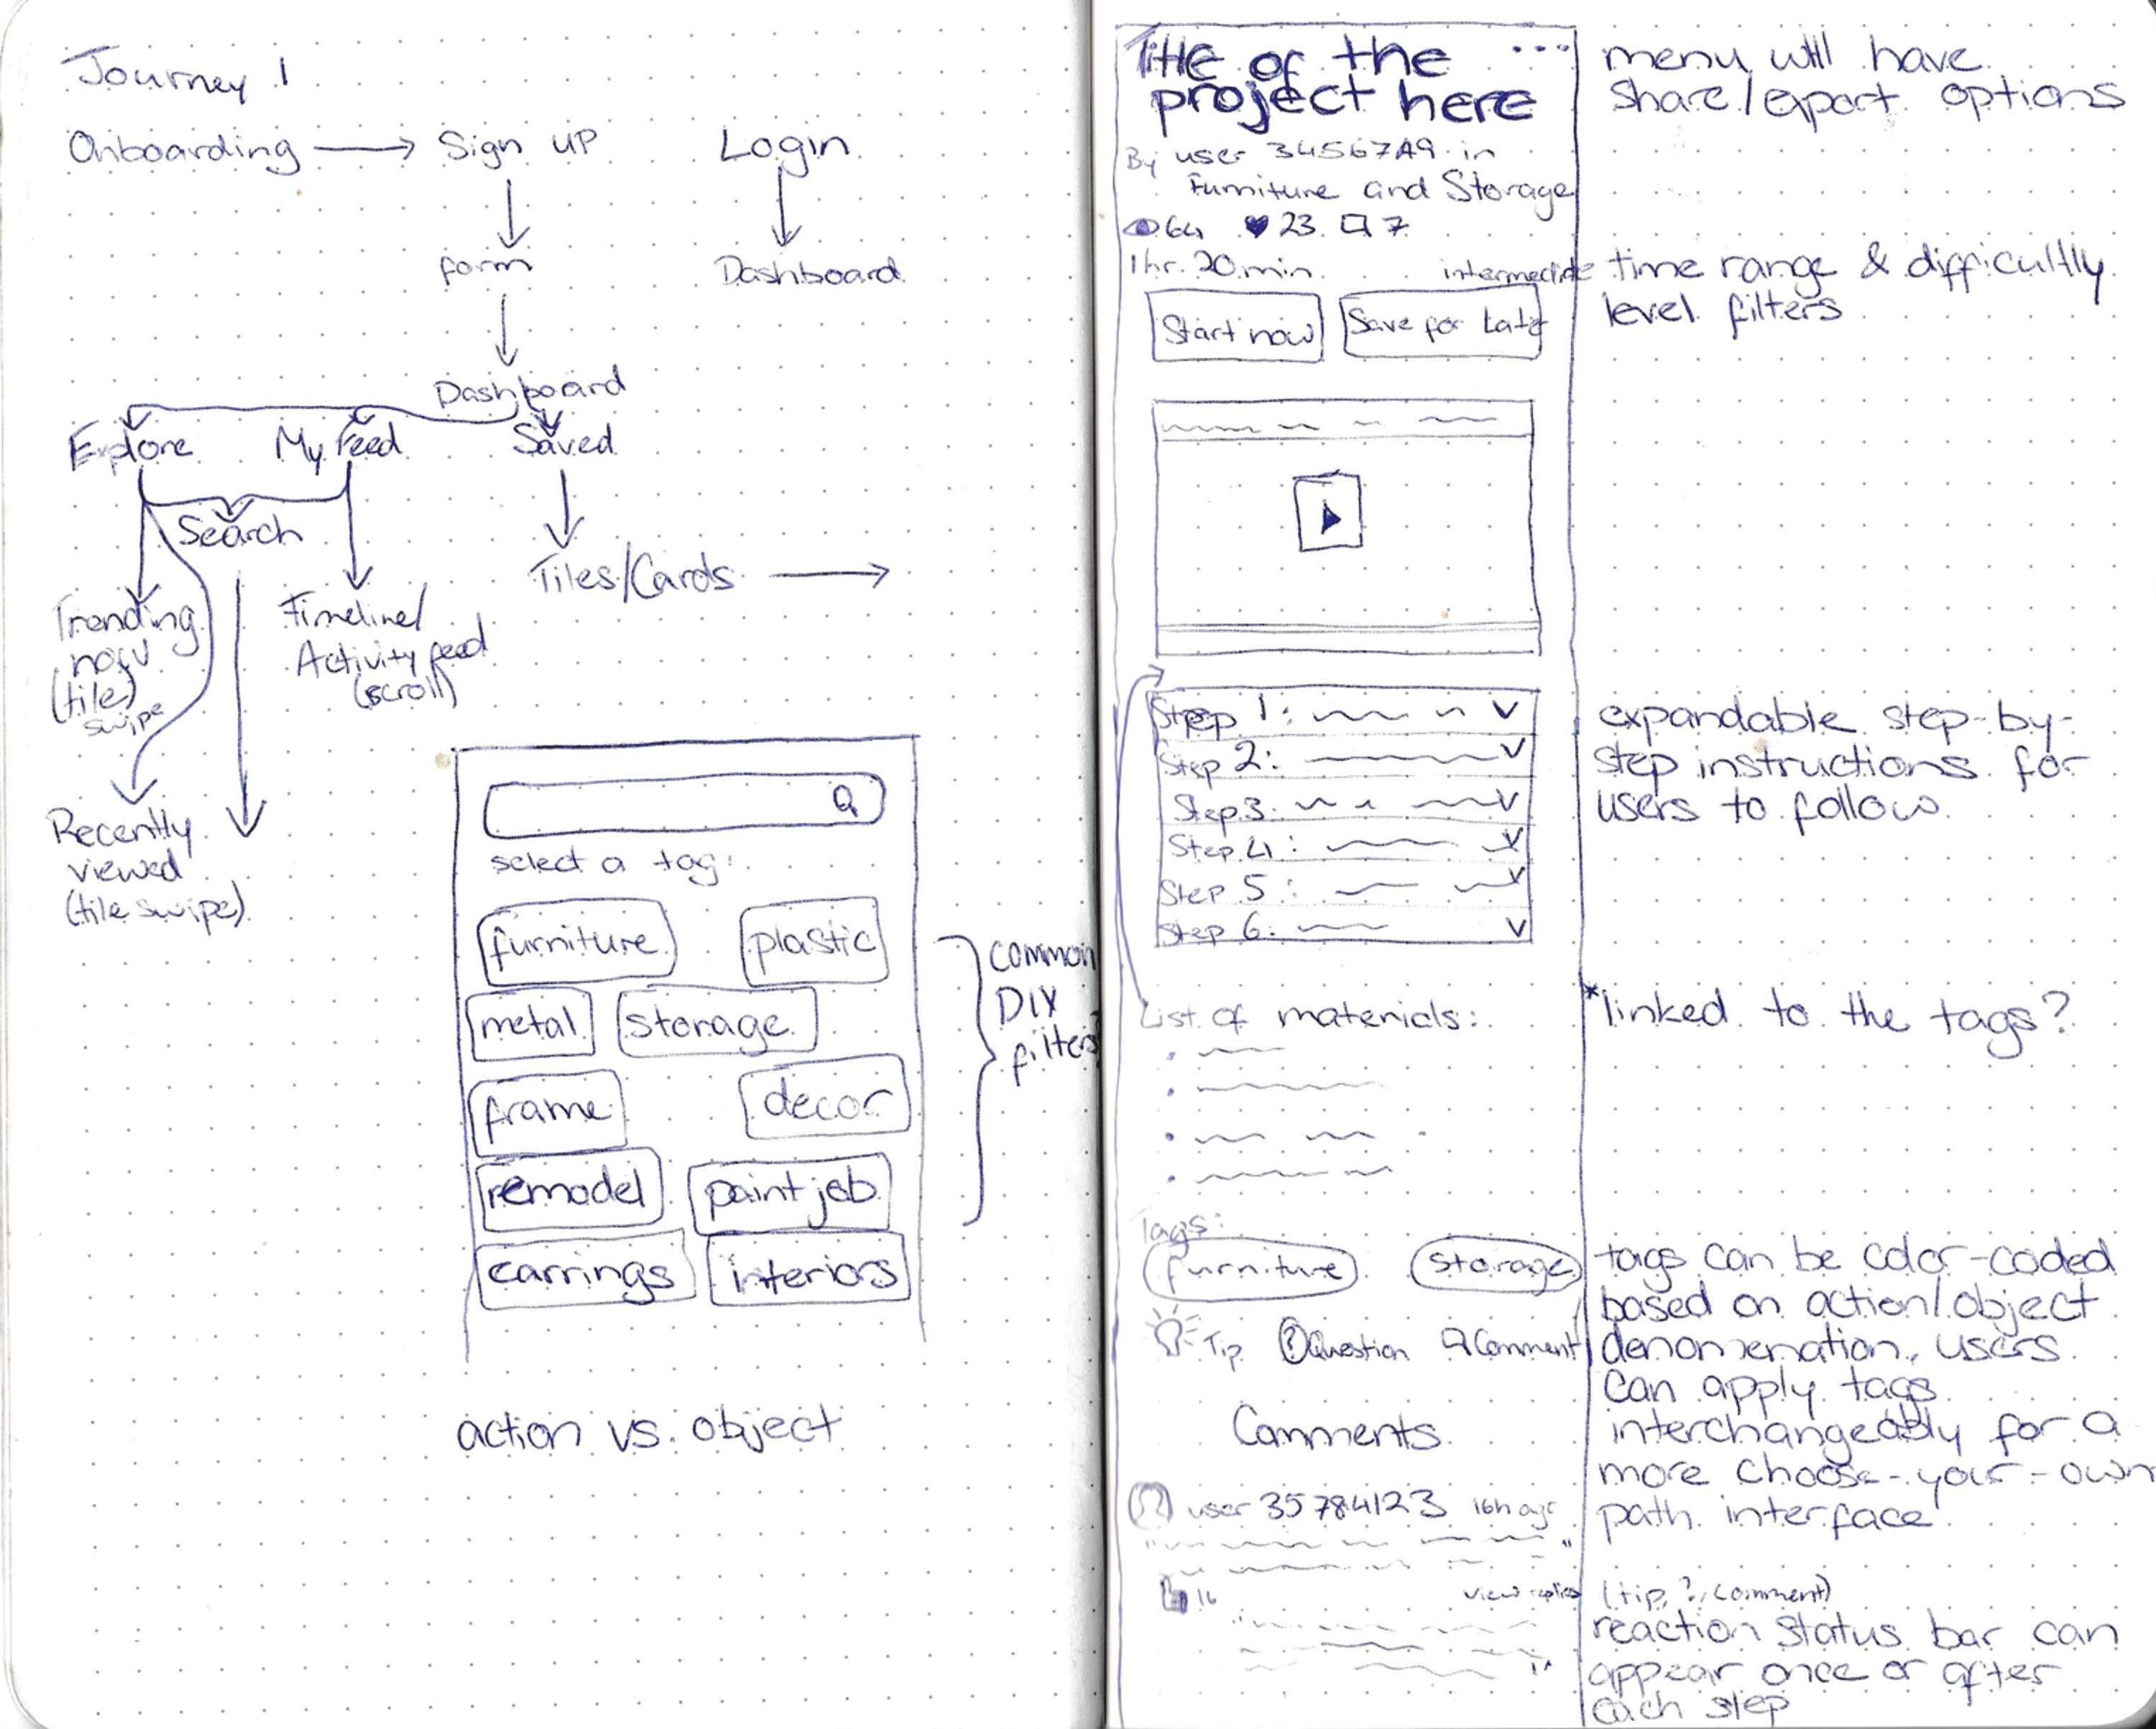 Journey 1
Onboarding → Sign up
Login
form
Dashboard
Dashboard
Explore
My Feed
Saved
Search
Tiles/Cards →
Trending
now
(tile)
swipe
Timeline/
Activity feed
(scroll)
Recently
viewed
(tile swipe)
select a tag:
furniture
plastic
metal
storage
frame
decor
remodel
paint job
earrings
interiors
common
DIY
filters?
action vs. object
Title of the
project here
...
menu will have
share/export options
By user 34567A9 in
Furniture and Storage
64 23 7
1hr. 20min
intermediate
time range & difficultly
level filters
Start now
Save for Late
Step 1:
Step 2:
Step 3:
Step 4:
Step 5:
Step 6:
expandable step-by-
step instructions for
users to follow
List of materials:
*linked to the tags?
Tags:
furniture
storage
Tip
?Question
Comment
tags can be color-coded
based on action/object
denomenation, users
can apply tags
interchangeably for a
more choose-your-own
path interface
Comments
user 35784123 16h ago
16
view replies
(tip, ?, comment)
reaction status bar can
appear once or after
each step